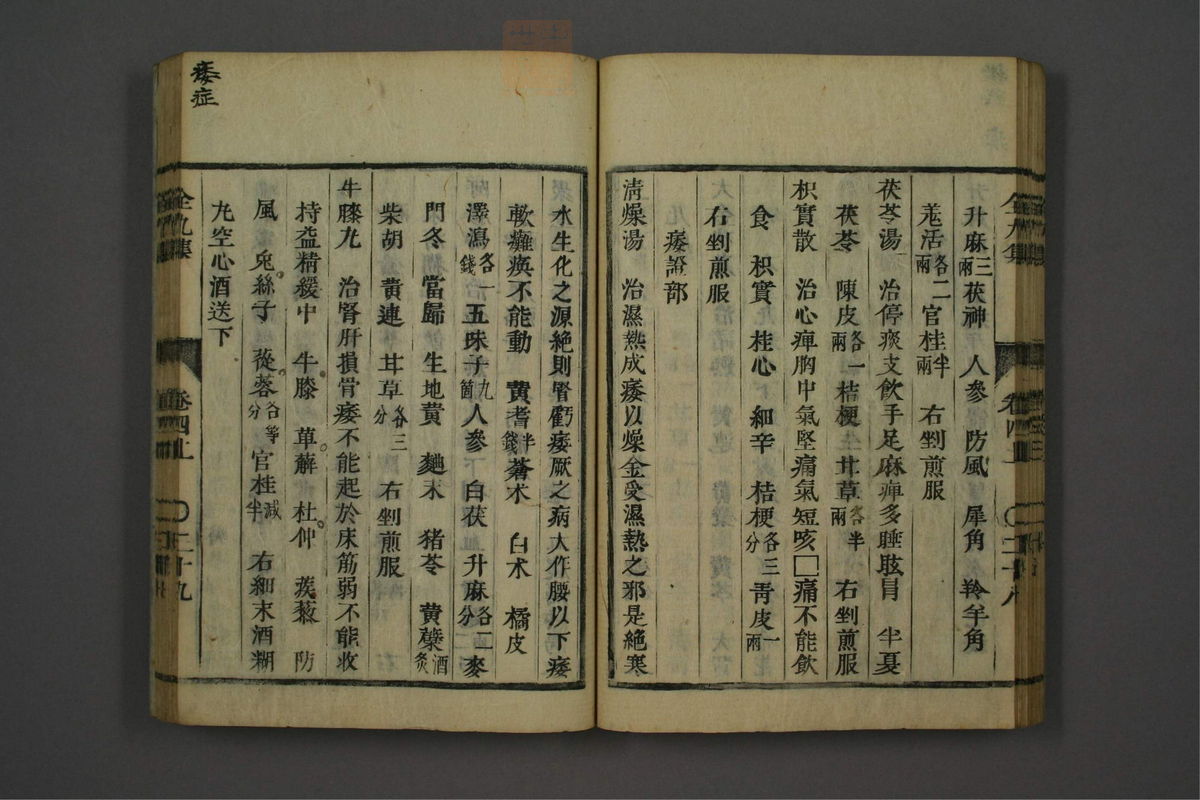 升麻三兩茯神　人參　防風　犀角　羚羊角
羗活各二兩官桂半兩　右剉煎服
茯苓湯　治停痰支飲手足麻痺多睡眩冒　半夏
茯苓　陳皮各一兩桔梗　甘草各半兩　右剉煎服
枳實散　治心痺胸中氣堅痛氣短咳□痛不能飲
食　枳實　桂心　細辛　桔梗各三分靑皮一兩
右剉煎服
痿證部
淸燥湯　治濕熱成痿以燥金受濕熱之邪是絶寒
水生化之源絶則腎虧痿厥之病大作腰以下痿
軟癱瘓不能動　黄耆半錢蒼朮　白朮　橘皮
澤瀉各一錢五味子九箇人參　白茯　升麻各二分麥
門冬　當歸　生地黄　麯末　猪苓　黄蘗酒炙
柴胡　黄連　甘草各三分　右剉煎服
牛膝丸　治腎肝損骨痿不能起於床筋弱不能收
持益精緩中　牛膝　萆薢　杜仲　蒺藜　防
風　兎絲子　蓯蓉各等分官桂減半　右細末酒糊
丸空心酒送下
全九集　卷四上　〇二十九
痿症
全九集　卷四上　〇二十八